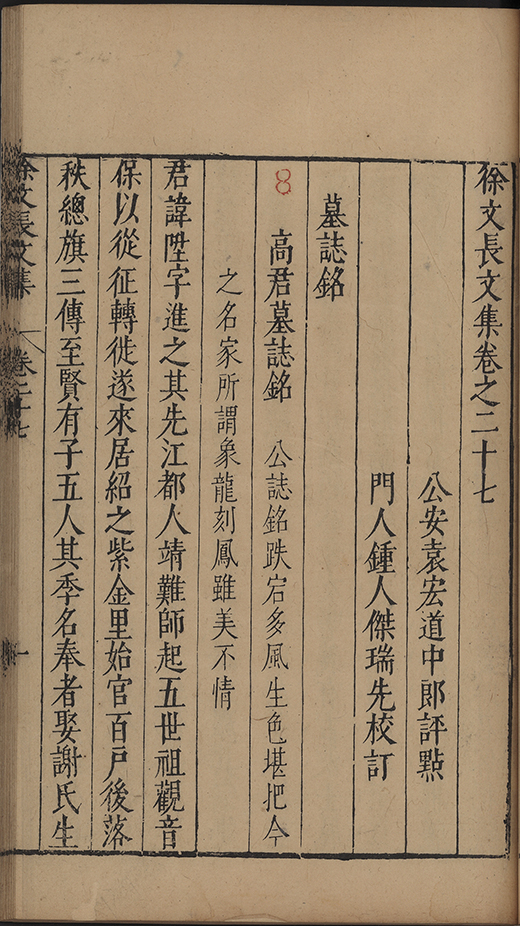 徐文長文集卷之二十七
公安袁宏道中郎評點
門人鍾人傑瑞先校訂
墓誌銘
8
高君墓誌銘 公誌銘跌宕多風生色堪把今
之名家所謂象龍刻鳳雖美不情
君諱陞字進之其先江都人靖難師起五世祖觀音
保以從征轉徙遂來居紹之紫金里始官百戶後落
秩總旗三傳至賢有子五人其季名奉者娶謝氏生
徐文長文集 卷二十七 一